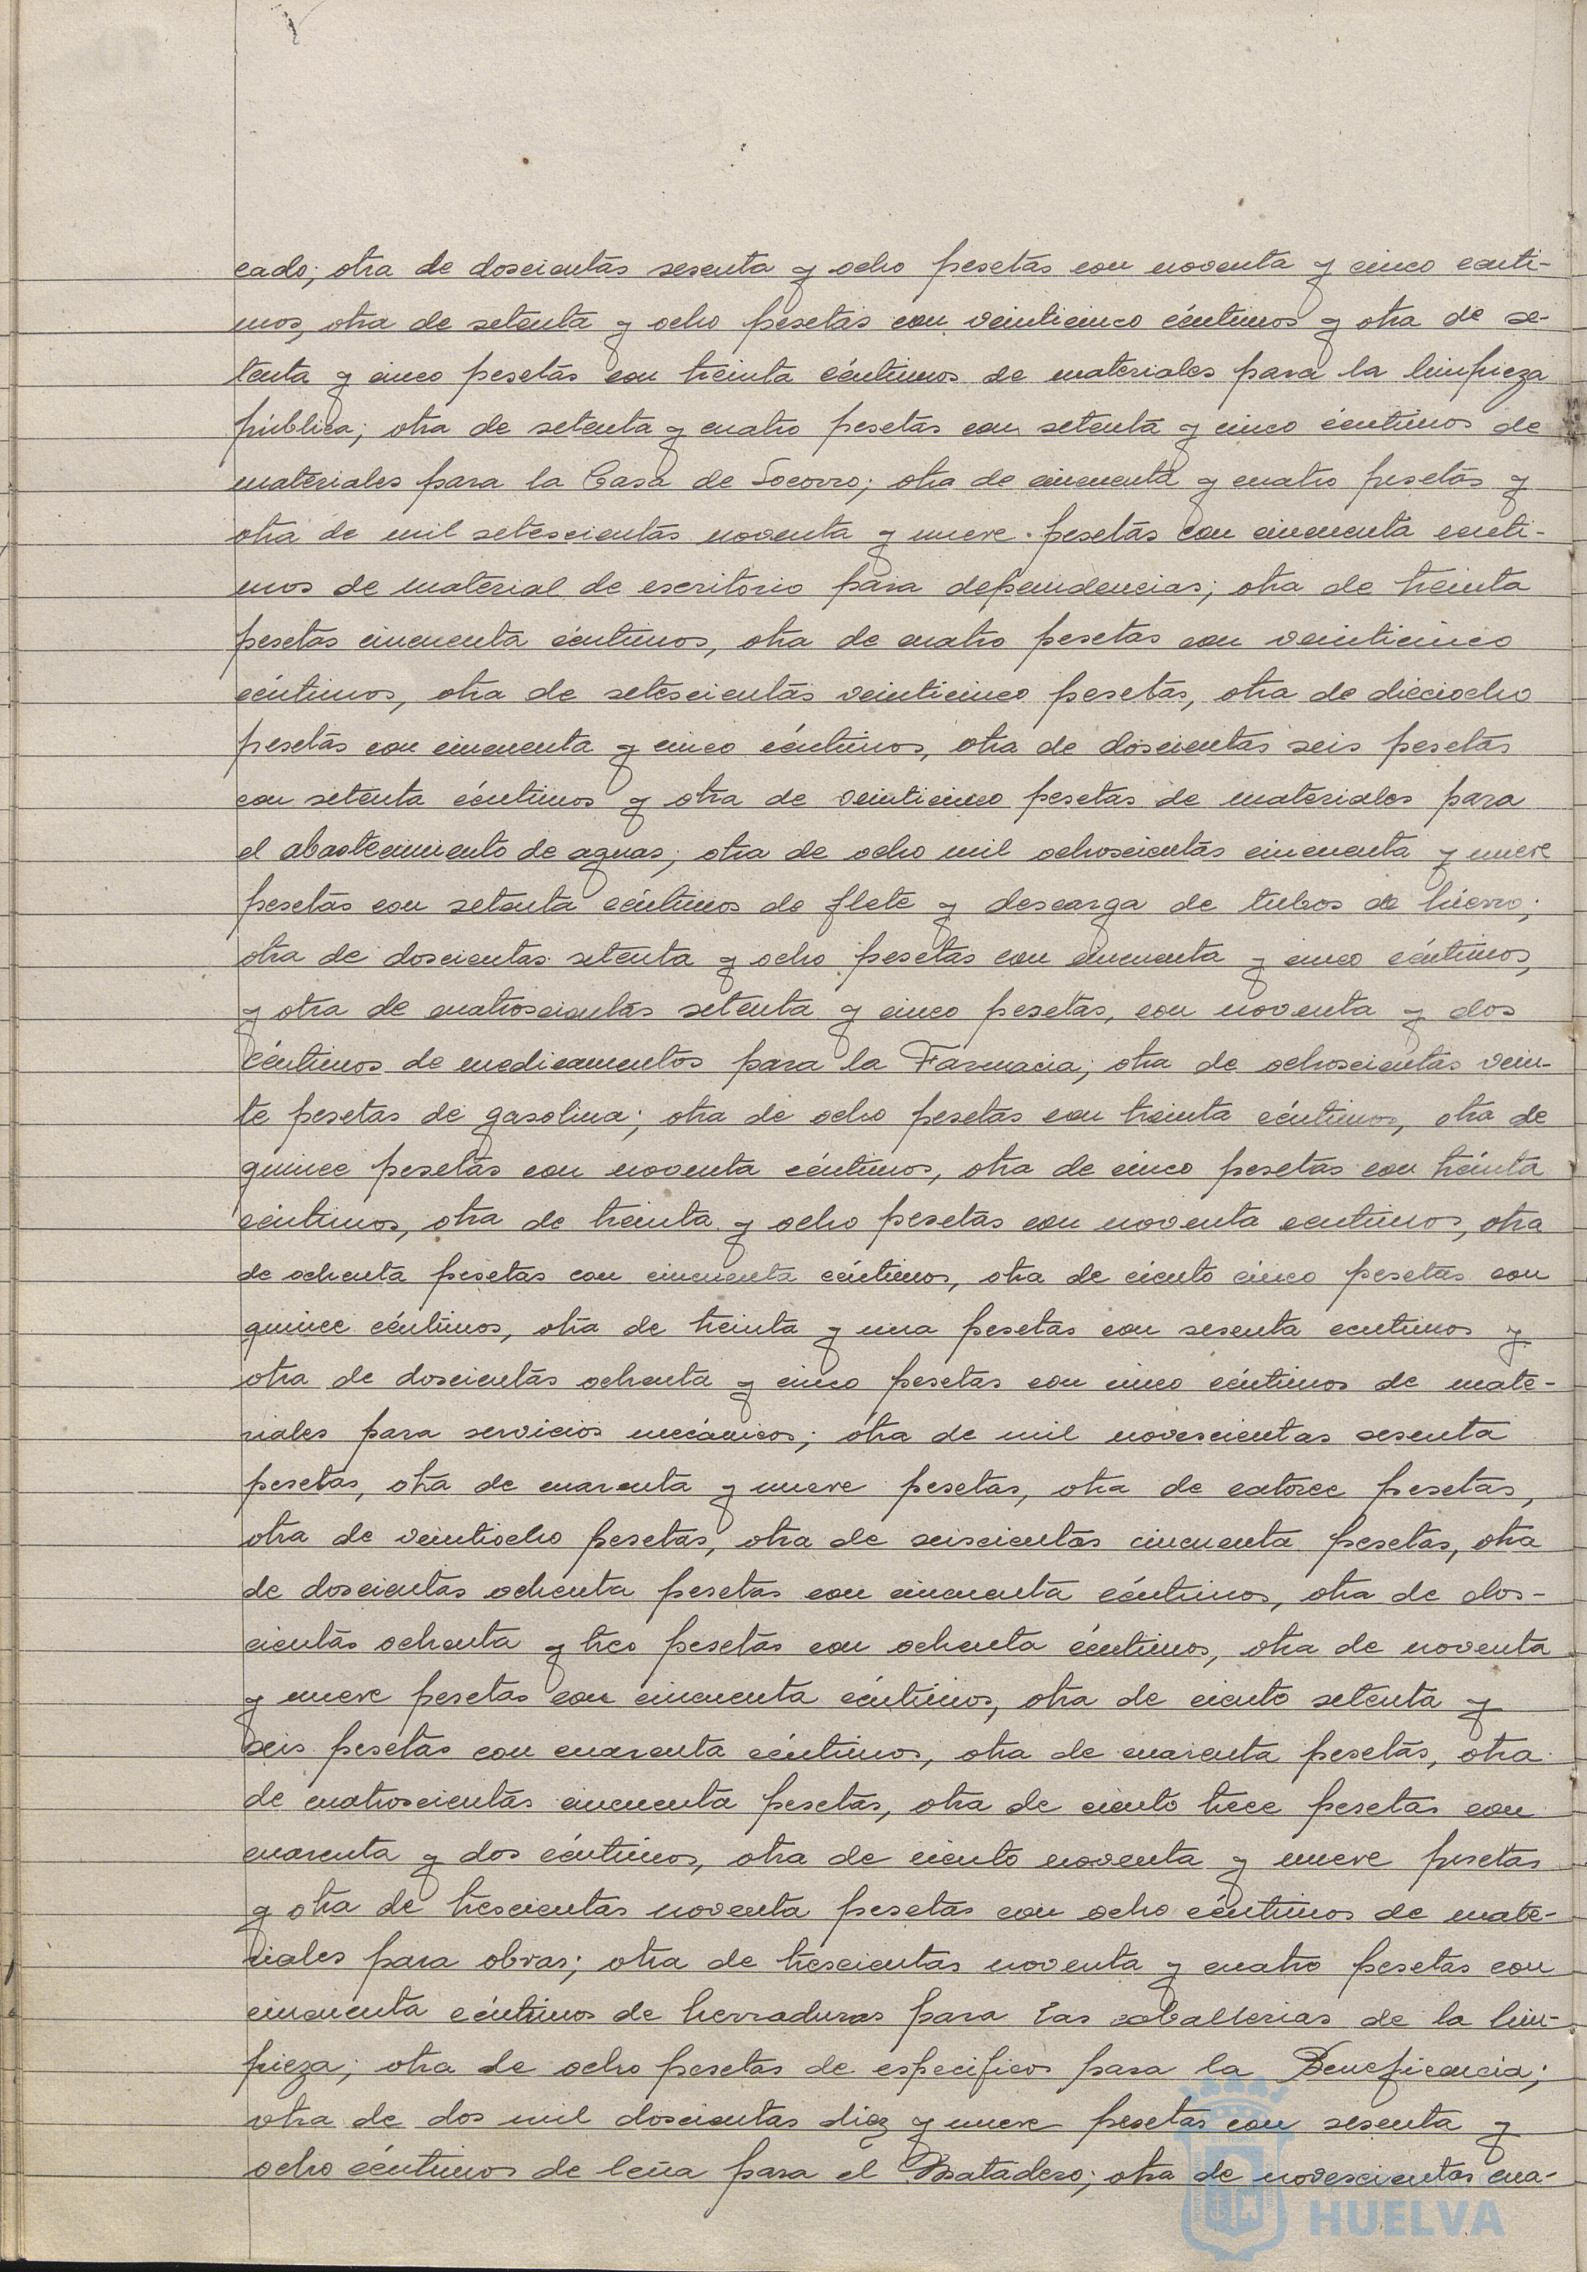 cado; otra de doscientas sesenta y ocho pesetas con noventa y cinco cénti-
mos, otra de setenta y ocho pesetas con veinticinco céntimos y otra de se-
tenta y cinco pesetas con treinta céntimos de materiales para la limpieza
pública; otra de setenta y cuatro pesetas con setenta y cinco céntimos de
materiales para la Casa de Socorro; otra de cincuenta y cuatro pesetas y
otra de mil setescientas noventa y nueve pesetas con cincuenta cénti-
mos de material de escritorio para dependencias; otra de treinta
pesetas cincuenta céntimos, otra de cuatro pesetas con veinticinco
céntimos, otra de setescientas veinticinco pesetas, otra de dieciocho
pesetas con cincuenta y cinco céntimos, otra de doscientas seis pesetas
con setenta céntimos y otra de veinticinco pesetas de materiales para
el abastecimiento de aguas; otra de ocho mil ochoscientas cincuenta y nueve
pesetas con setenta céntimos de flete y descarga de tubos de hierro;
otra de doscientas setenta y ocho pesetas con cincuenta y cinco céntimos,
y otra de cuatroscientas setenta y cinco pesetas, con noventa y dos
céntimos de medicamentos para la Farmacia; otra de ochoscientas vein-
te pesetas de gasolina; otra de ocho pesetas con treinta céntimos, otra de
quince pesetas con noventa céntimos, otra de cinco pesetas con treinta
céntimos, otra de treinta y ocho pesetas con noventa centimos, otra
de ochenta pesetas con cincuenta céntimos, otra de ciento cinco pesetas con
quince céntimos, otra de treinta y una pesetas con sesenta centimos y
otra de doscientas ochenta y cinco pesetas con cinco céntimos de mate-
riales para servicios mecánicos; otra de mil novescientas sesenta
pesetas, otra de cuarenta y nueve pesetas, otra de catorce pesetas,
otra de veintiocho pesetas, otra de seiscientas cincuenta pesetas, otra
de doscientas ochenta pesetas con cincuenta céntimos, otra de dos-
cientas ochenta y tres pesetas con ochenta céntimos, otra de noventa
y nueve pesetas con cincuenta céntimos, otra de ciento setenta y
seis pesetas con cuarenta céntimos, otra de cuarenta pesetas, otra
de cuatroscientas cincuenta pesetas, otra de ciento trece pesetas con
cuarenta y dos céntimos, otra de ciento noventa y nueve pesetas
y otra de trescientas noventa pesetas con ocho céntimos de mate-
riales para obras; otra de trescientas noventa y cuatro pesetas con
cincuenta céntimos de herraduras para las caballerias de la lim-
pieza; otra de ocho pesetas de especificos para la Beneficencia;
otra de dos mil doscientas diez y nueve pesetas con sesenta y
ocho céntimos de leña para el Matadero; otra de novescientas cua-
HUELVA